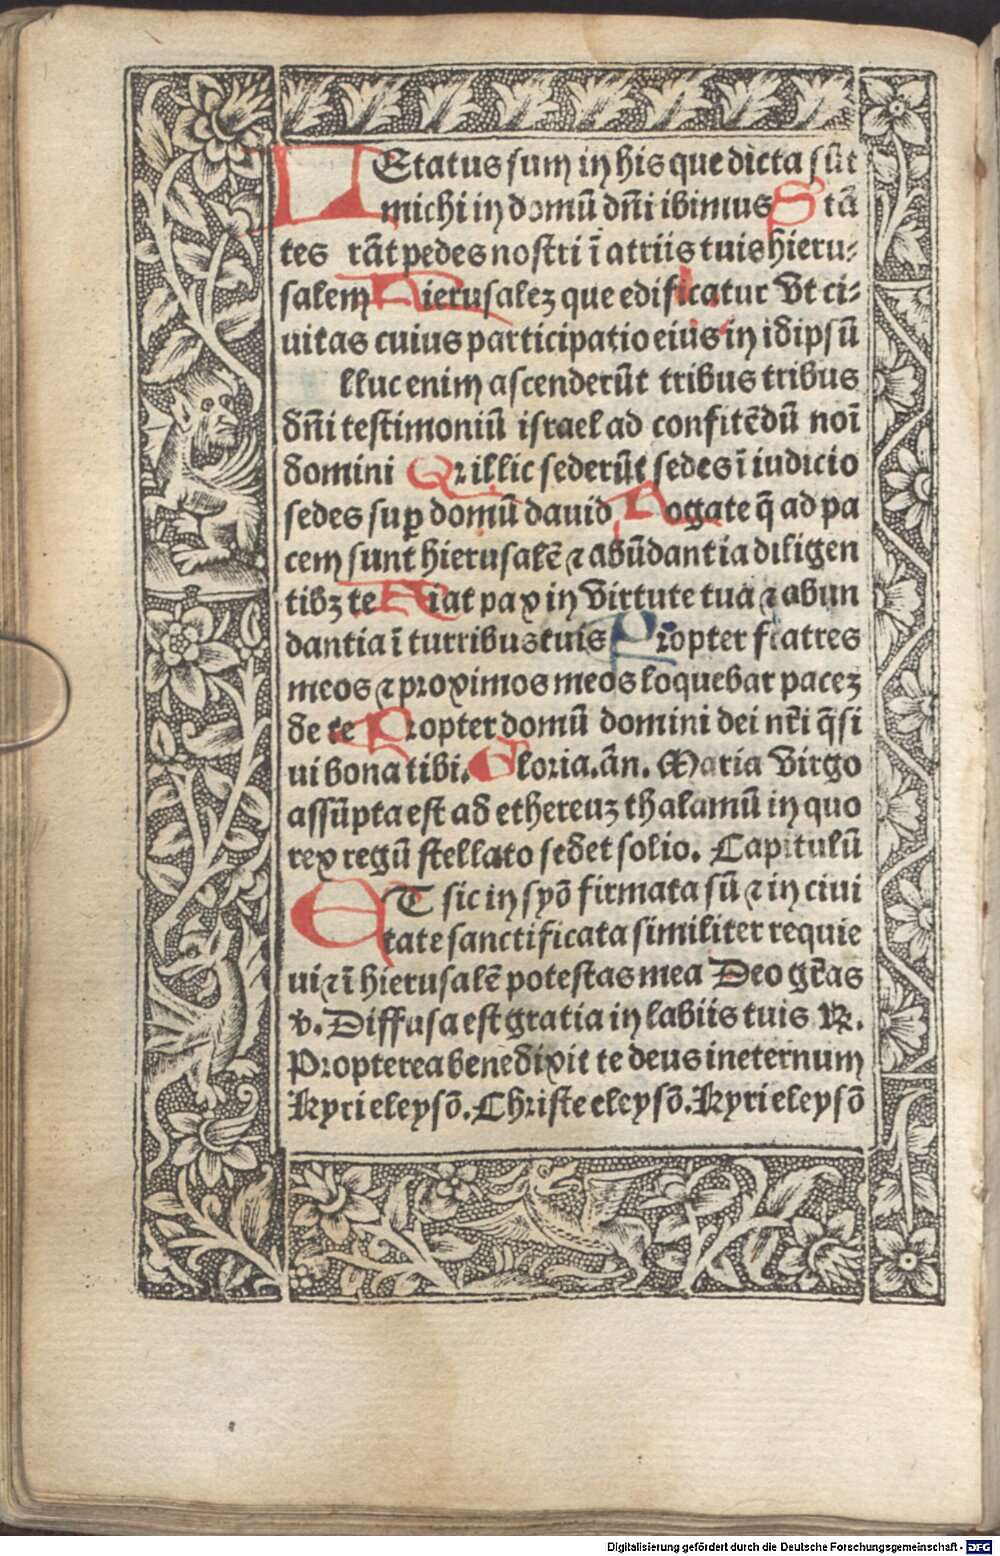 LEtatus sum in his que dicta sūt
michi in domū dn̄i ibimus Stā
tes rāt pedes nostri ī atriis tuis hieru⸗
salem Hierusaleꝫ que edificatur Vt ci⸗
uitas cuius participatio eius in idipsū
lluc enim ascenderūt tribus tribus
dn̄i testimoniū israel ad confitēdū noī
domini Qꝛ illic sederūt sedes ī iudicio
sedes suꝑ domū dauid Rogate q̄ ad pa
cem sunt hierusalē ⁊ abūdantia diligen
tibꝫ te Fiat pax in virtute tua ⁊ abun
dantia ī turribus tuis Propter fratres
meos ⁊ proximos meos loquebar paceꝫ
de te Propter domū domini dei nr̄i q̄si
ui bona tibi. Gloria. ān. Maria virgo
assūpta est ad ethereuꝫ thalamū in quo
rex regū stellato sedet solio. Capitulū
ET sic in syō firmata sū ⁊ in ciui
tate sanctificata similiter requie
ui ⁊ ī hierusalē potestas mea Deo gr̄as
v. Diffusa est gratia in labiis tuis ℟.
Propterea benedixit te deus ineternum
Kyrieleysō. Christe eleysō. Kyrieleysō
Digitalisierung gefördert durch die Deutsche Forschungsgemeinschaft - DFG